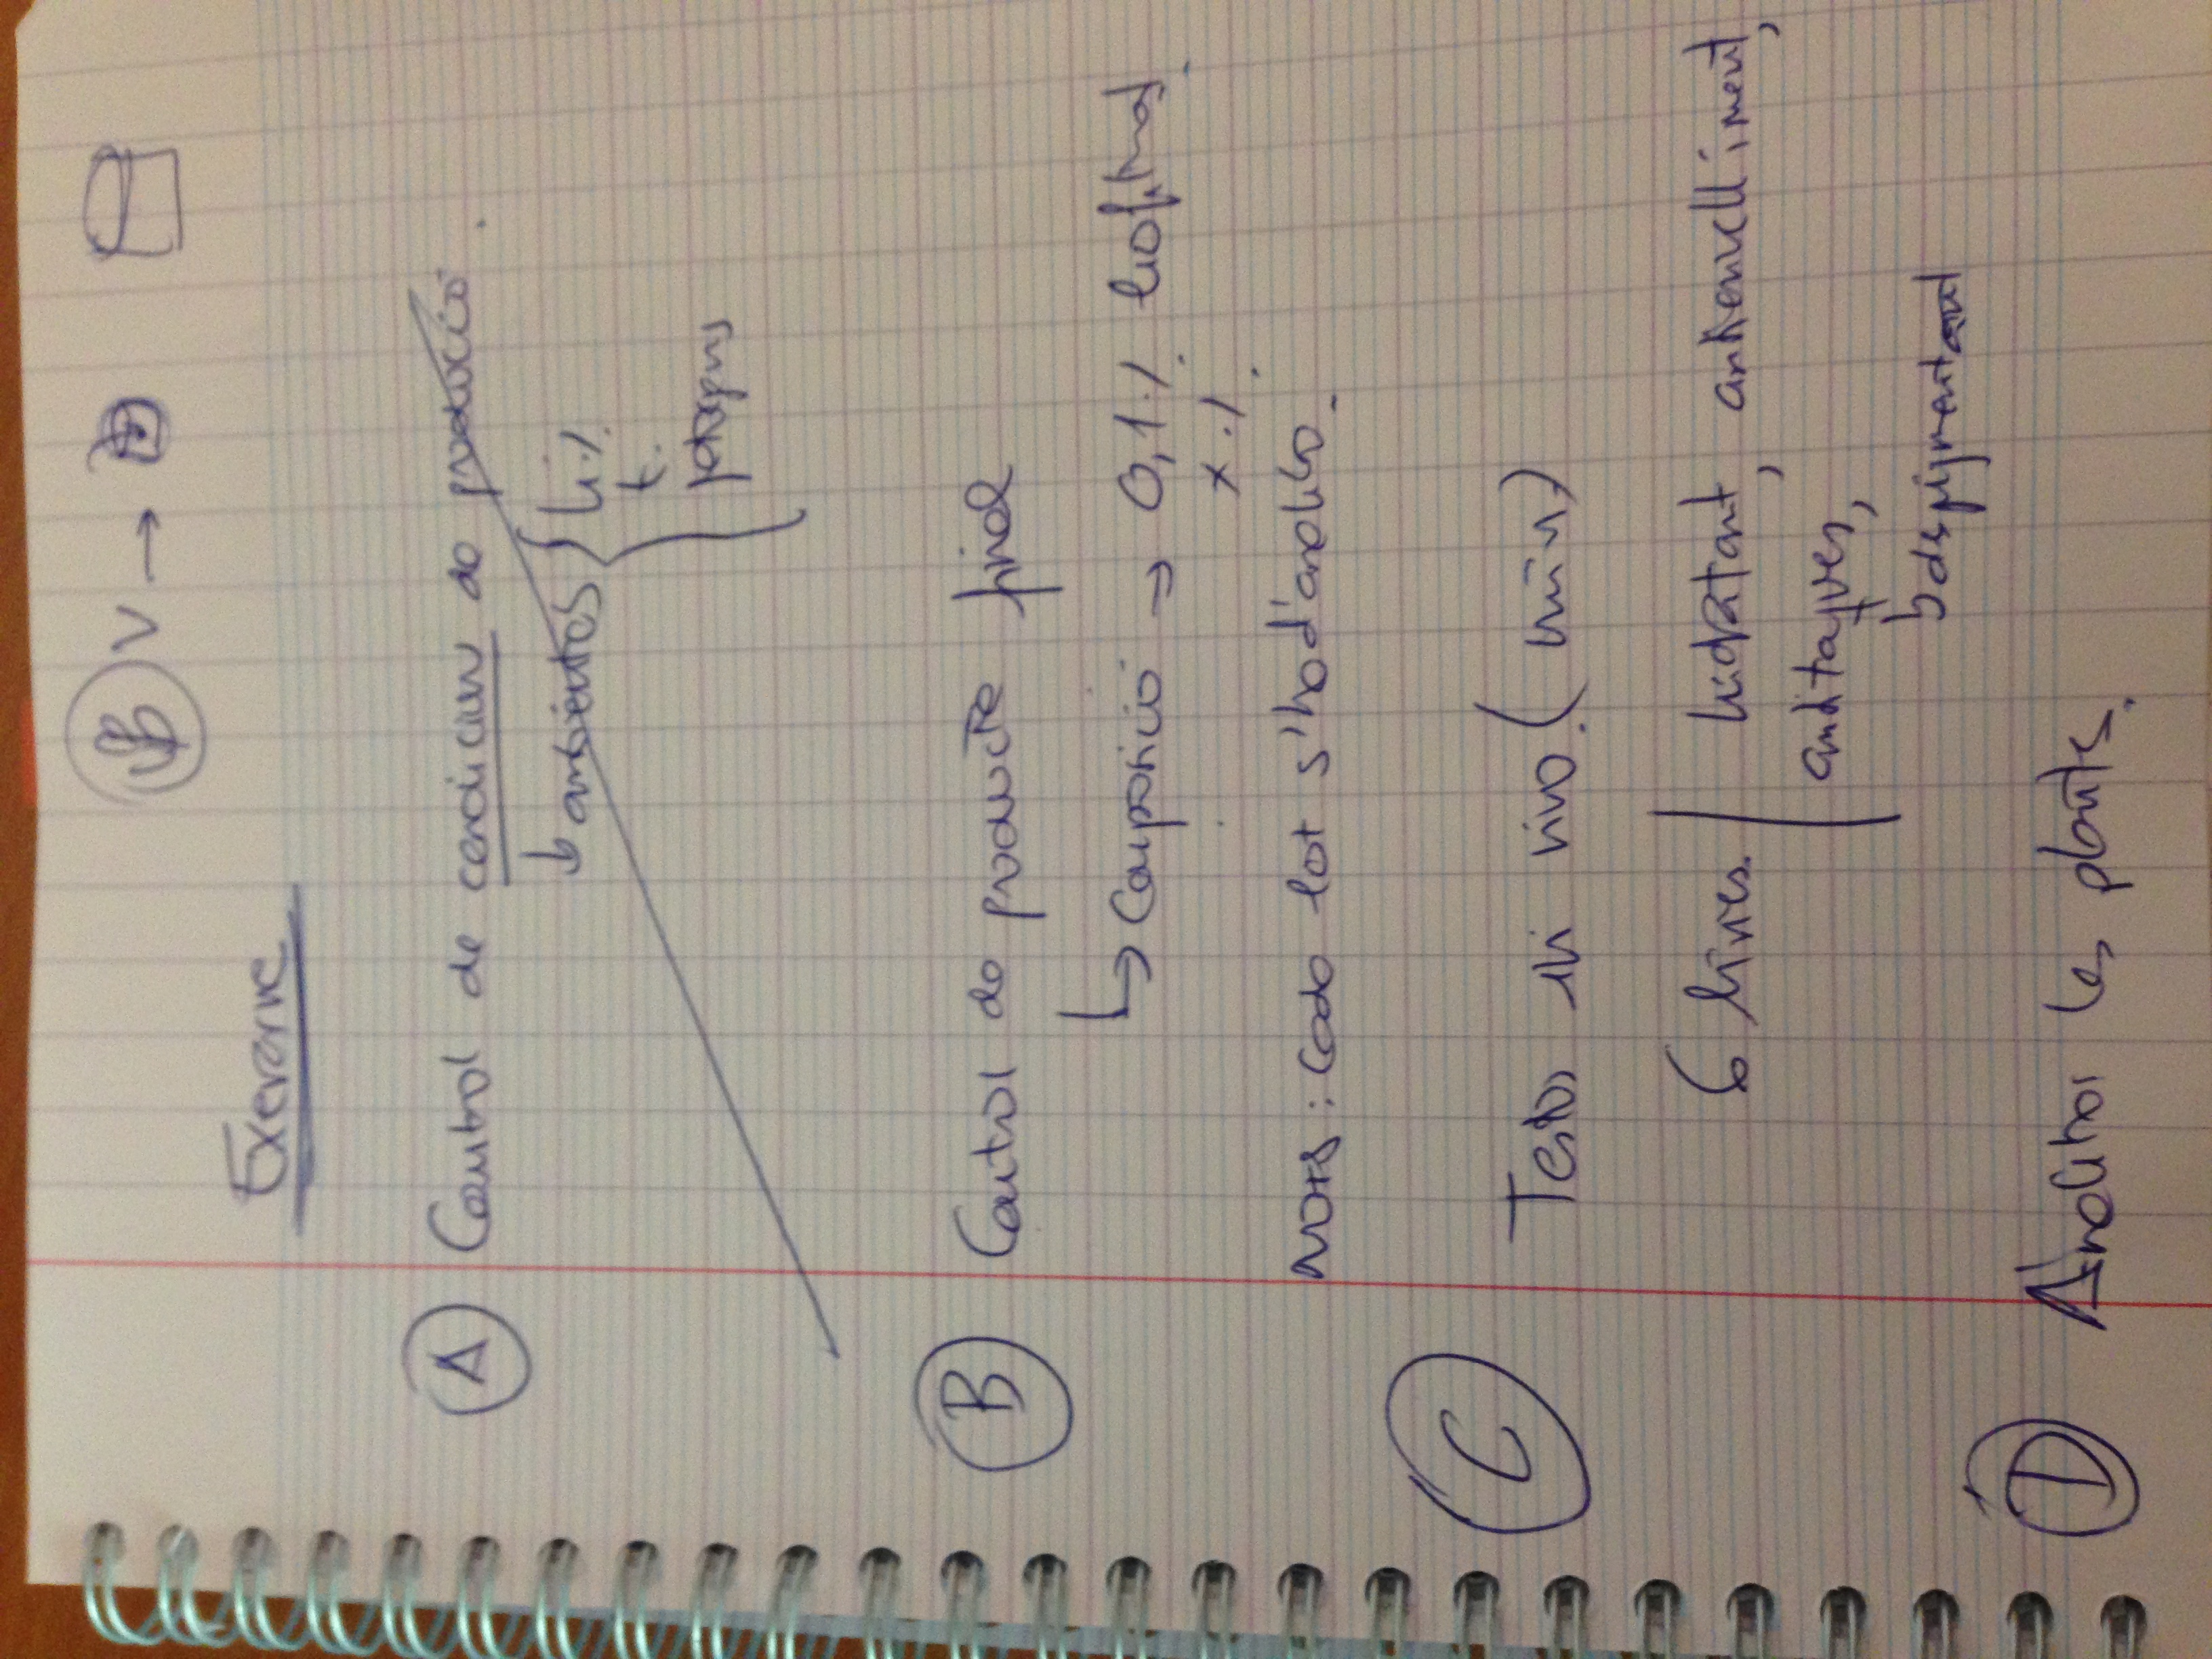 V →
A Control de condicions de producció.
ambientals { h.%
t.
patògens
B Control de producte final
↳ Composició → 0,1% liofilitzat
x %
NOTA: cada lot s'ha d'analitza.
C
Tests in vivo. (mín)
6 línies. hidratant, antienvelliment,
antitaques,
↳ despigmentant
D Analitzar les plantes.